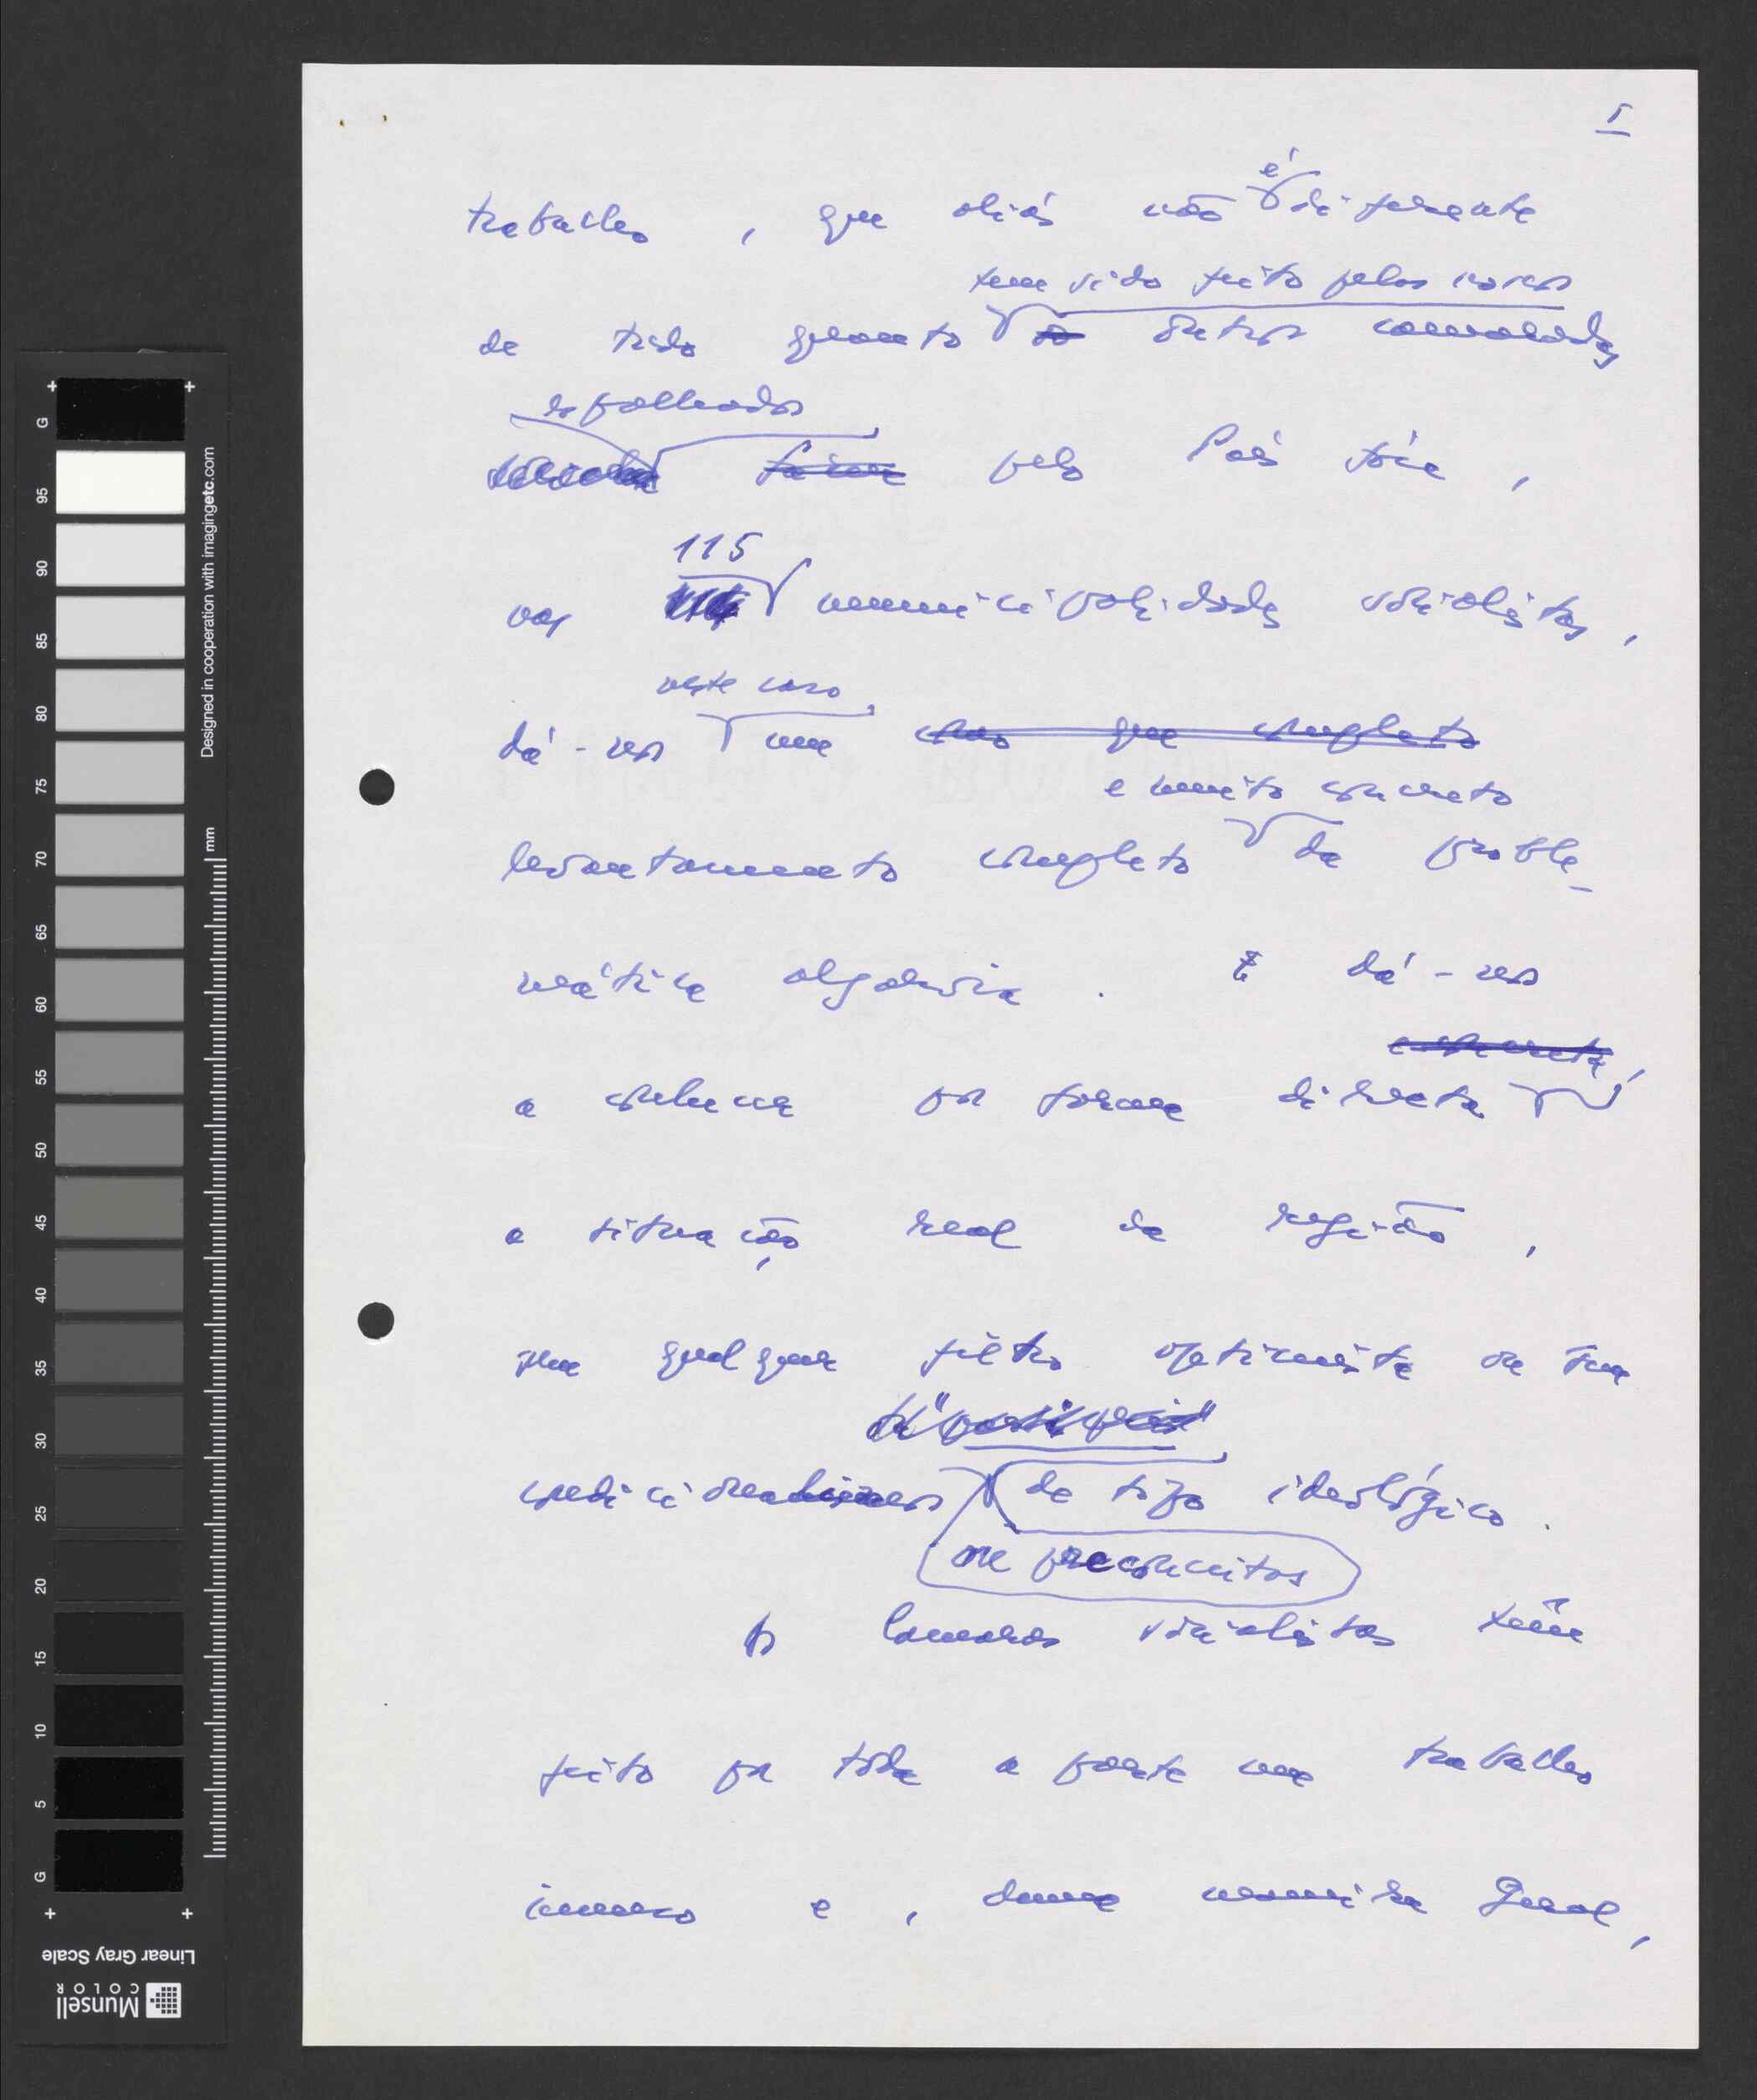 5
trabalho, que aliás não é diferente
de tudo quanto tem sido feito pelos nossos
outros camaradas
espalhados pelo País fora,
nas 115 municipalidades socialistas,
dá-nos neste caso, um que completo
levantamento completo e muito concreto da proble-
mática algarvia. E dá-nos
a conhecer por forma directa,
a situação real da região,
sem qualquer filtro optimista ou sua
de tipo ideológico.
ou preconceitos
As Câmaras socialistas têm
feito por toda a parte um trabalho
imenso e, duma maneira geral,
G 95 90 85 80 75 70 65 60 55 50 45 40 35 30 25 20 15 10 5 G
Designed in cooperation with imagingetc.com
mm
Linear Gray Scale
Munsell
COLOR